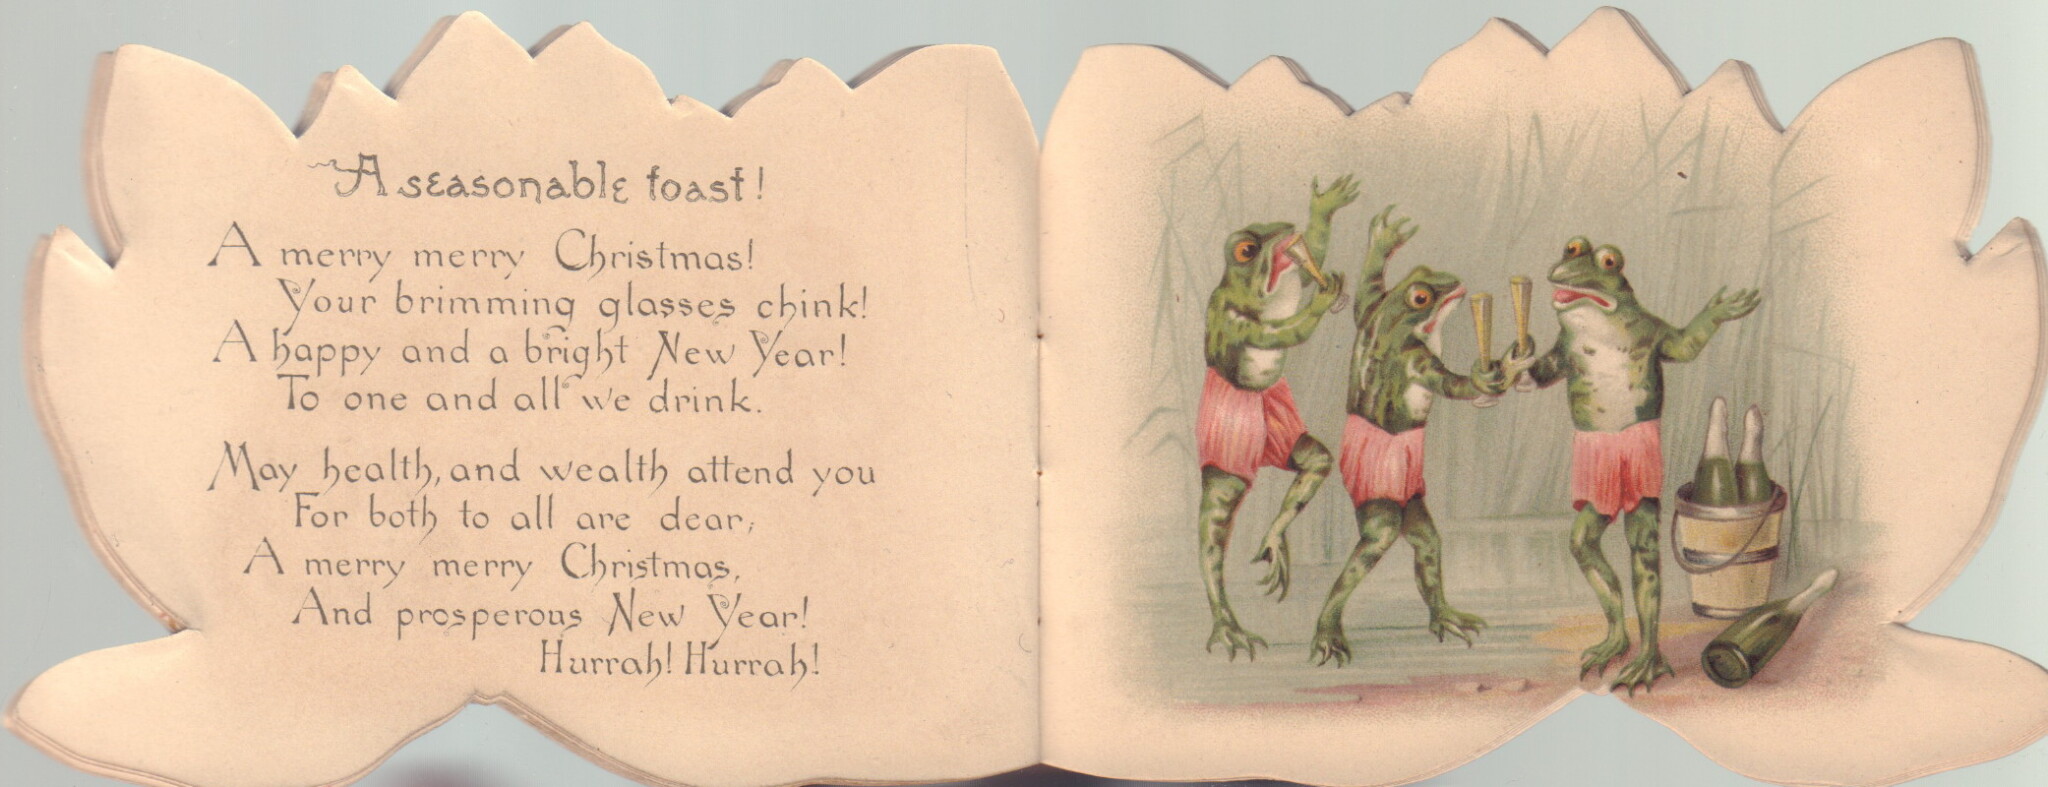 A seasonable toast!
A merry merry Christmas!
Your brimming glasses chink!
A happy and a bright New Year!
To one and all we drink.
May health, and wealth attend you
For both to all are dear;
A merry merry Christmas,
And prosperous New Year!
Hurrah! Hurrah!